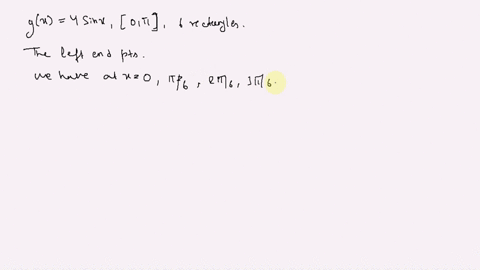 g(x) = 4 Sinx, [0,π], 6 rectangles.
The left end pts.
We have at x=0, π/6, 2π/6, 3π/6.